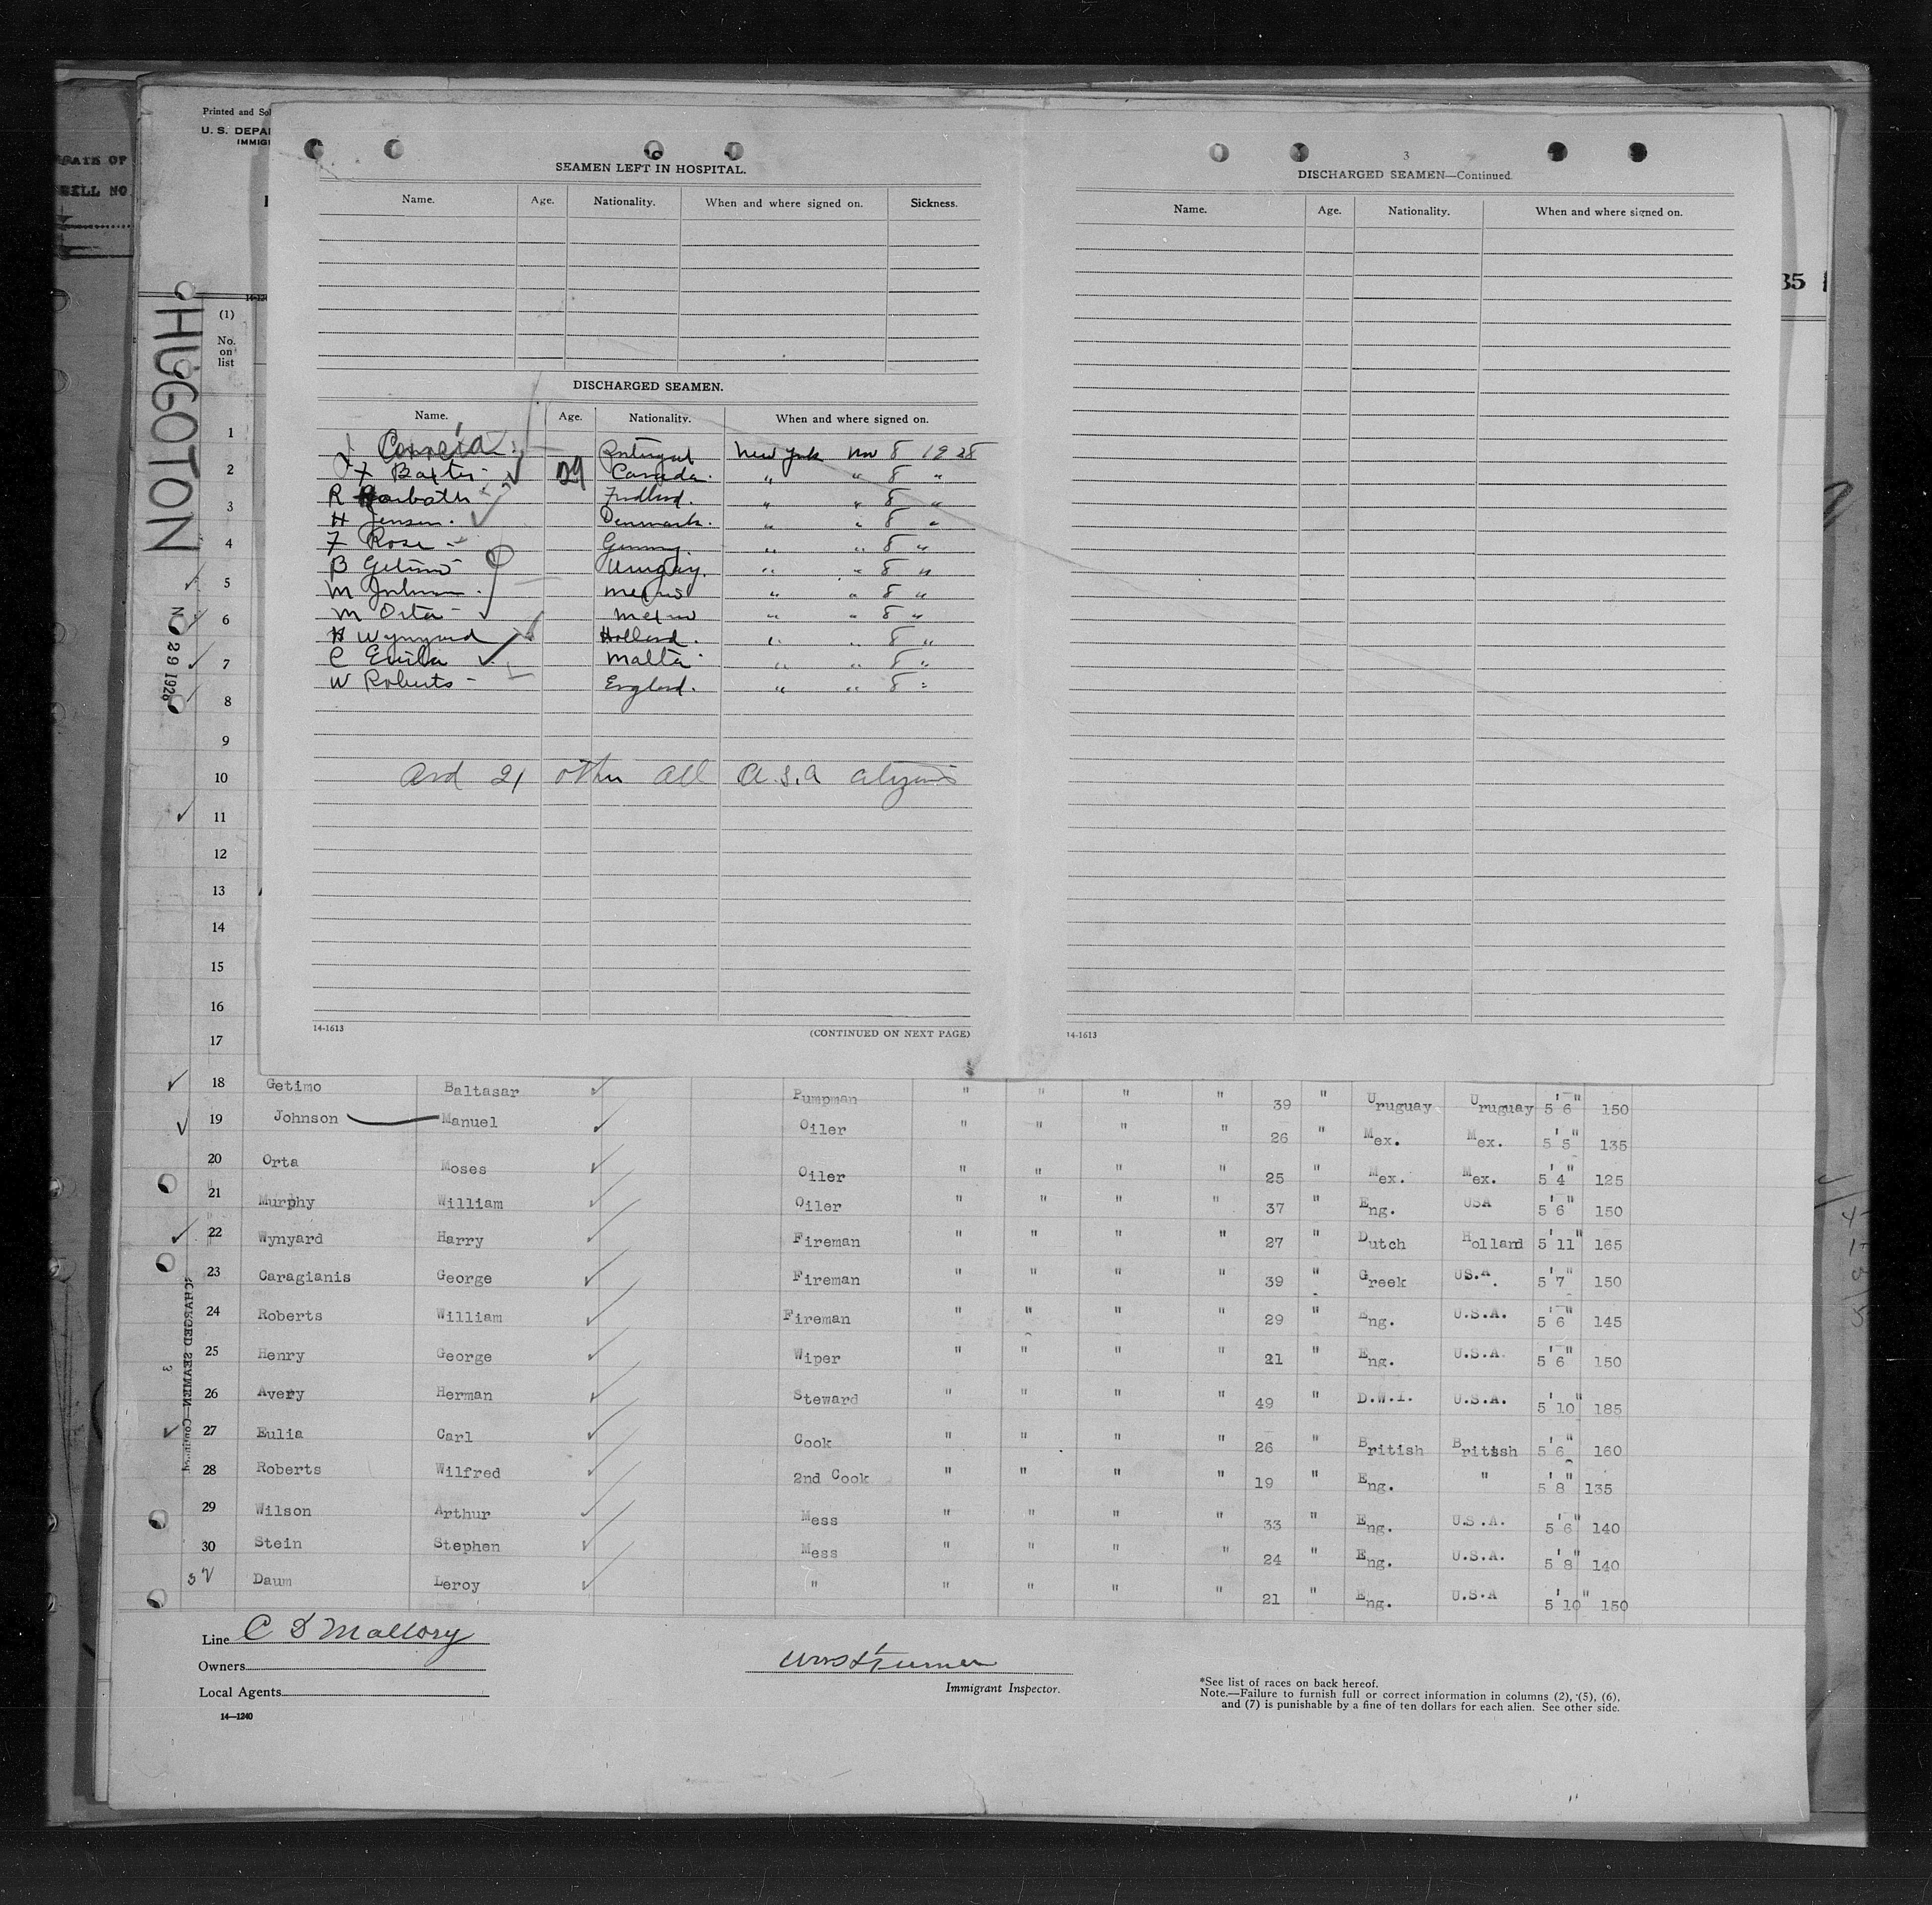 Printed and Sol
U. S. DEPA
IMMIG
RATE OF
BILL NO
SEAMEN LEFT IN HOSPITAL.
Name. Age. Nationality. When and where signed on. Sickness.
DISCHARGED SEAMEN.
Name. Age. Nationality. When and where signed on.
J Correia Portugal New York Nov 8 1928
F Baxter 29 Canada. " " 8 "
R Finland. " " 8 "
H Jensen. Denmark. " " 8 "
F Rose Germny. " " 8 "
B Getimo Uruguay. " " 8 "
M Johnson. Mexico " " 8 "
M Orta Mexico " " 8 "
H Wynyard Holland. " " 8 "
C Eulia Malta " " 8 "
W Roberts England. " " 8 "
And 21 other all U.S.A citizens
14-1613 (CONTINUED ON NEXT PAGE)
3
DISCHARGED SEAMEN—Continued.
Name. Age. Nationality. When and where signed on.
14-1613
35
HUGOTON
NO 29 1928
(1)
No.
on
list
1
2
3
4
5
6
7
8
9
10
11
12
13
14
15
16
17
18 Getimo Baltasar Pumpman " " " " 39 " Uruguay Uruguay 5'6" 150
19 Johnson Manuel Oiler " " " " 26 " Mex. Mex. 5'5" 135
20 Orta Moses Oiler " " " " 25 " Mex. Mex. 5'4" 125
21 Murphy William Oiler " " " " 37 " Eng. USA 5'6" 150
22 Wynyard Harry Fireman " " " " 27 " Dutch Holland 5'11" 165
23 Caragianis George Fireman " " " " 39 " Greek US.A. 5'7" 150
24 Roberts William Fireman " " " " 29 " Eng. U.S.A. 5'6" 145
25 Henry George Wiper " " " " 21 " Eng. U.S.A. 5'6" 150
26 Avery Herman Steward " " " " 49 " D.W.I. U.S.A. 5'10" 185
27 Eulia Carl Cook " " " " 26 " British British 5'6" 160
28 Roberts Wilfred 2nd Cook " " " " 19 " Eng. " 5'8" 135
29 Wilson Arthur Mess " " " " 33 " Eng. U.S.A. 5'6" 140
30 Stein Stephen Mess " " " " 24 " Eng. U.S.A. 5'8" 140
Daum Leroy " " " " " 21 " Eng. U.S.A 5'10" 150
3
CHARGED SEAMEN—Contin
Line C D Mallory
Owners
Local Agents
14—1240
Immigrant Inspector.
*See list of races on back hereof.
Note.—Failure to furnish full or correct information in columns (2), (5), (6),
and (7) is punishable by a fine of ten dollars for each alien. See other side.